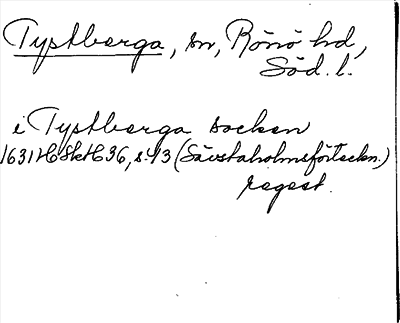 Tystberga, sn, Rönö hd,
Söd. l.
i Tystberga socken
1631 HC Skt H 36, s. 43 (Sävstaholmsförteckn.)
regest.